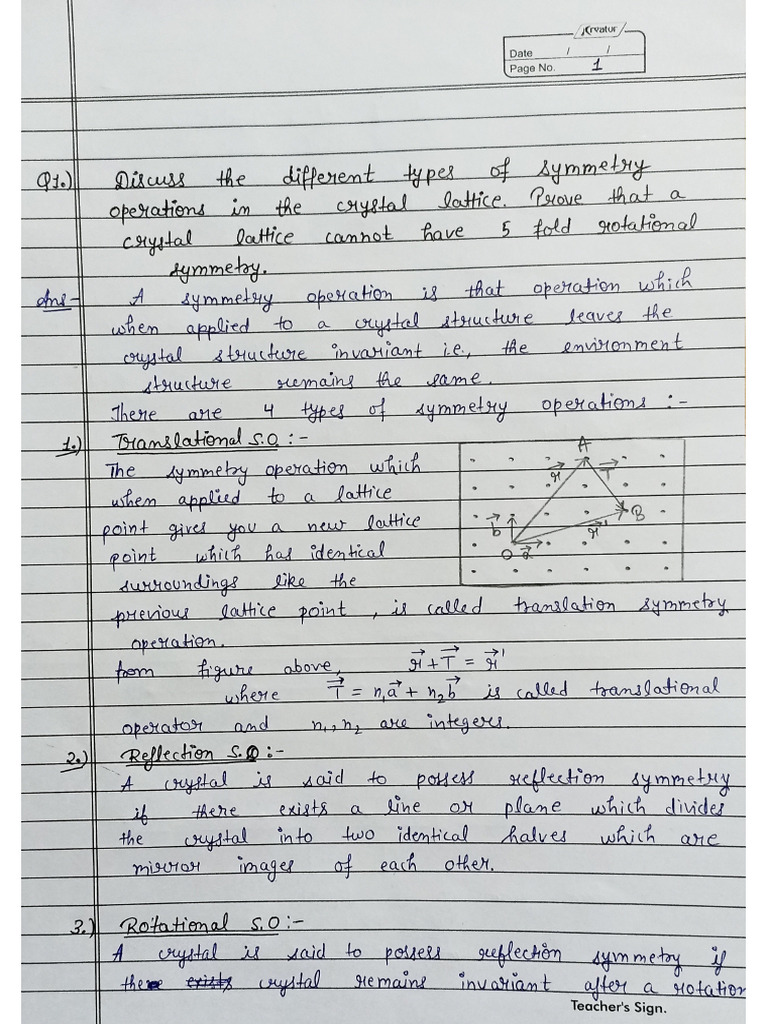 jKreatur
Date / /
Page No. 1
Q1.) Discuss the different types of symmetry
operations in the crystal lattice. Prove that a
crystal lattice cannot have 5 fold rotational
symmetry.
Ans- A symmetry operation is that operation which
when applied to a crystal structure leaves the
crystal structure invariant i.e., the environment
structure remains the same.
There are 4 types of symmetry operations :-
1.) Translational S.O. :-
The symmetry operation which
when applied to a lattice
point gives you a new lattice
point which has identical
surroundings like the
previous lattice point, is called translation symmetry
operation.
A
r⃗ T⃗
B
b⃗ r⃗'
O a⃗
from figure above, r⃗ + T⃗ = r⃗'
where T⃗ = n₁a⃗ + n₂b⃗ is called translational
operator and n₁, n₂ are integers.
2.) Reflection S.O :-
A crystal is said to possess reflection symmetry
if there exists a line or plane which divides
the crystal into two identical halves which are
mirror images of each other.
3.) Rotational S.O :-
A crystal is said to possess reflection symmetry if
the exists crystal remains invariant after a rotation
Teacher's Sign.